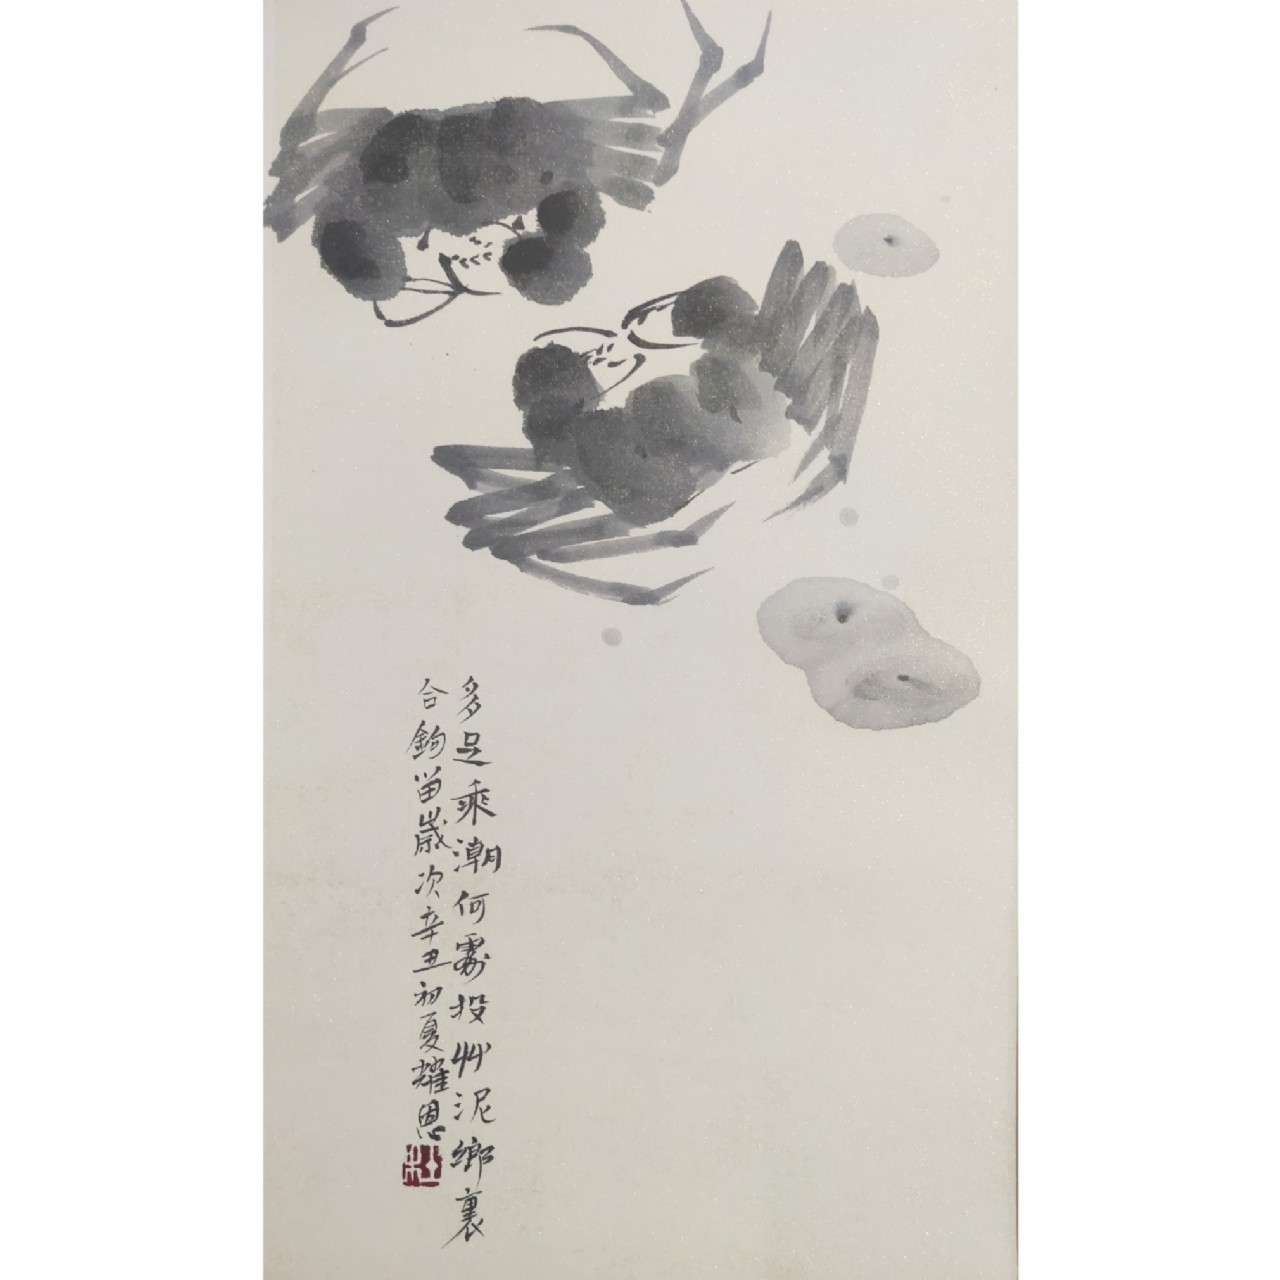 多足乘潮何處投艸泥鄉裏
合鉤留歲次辛丑初夏耀恩
杜